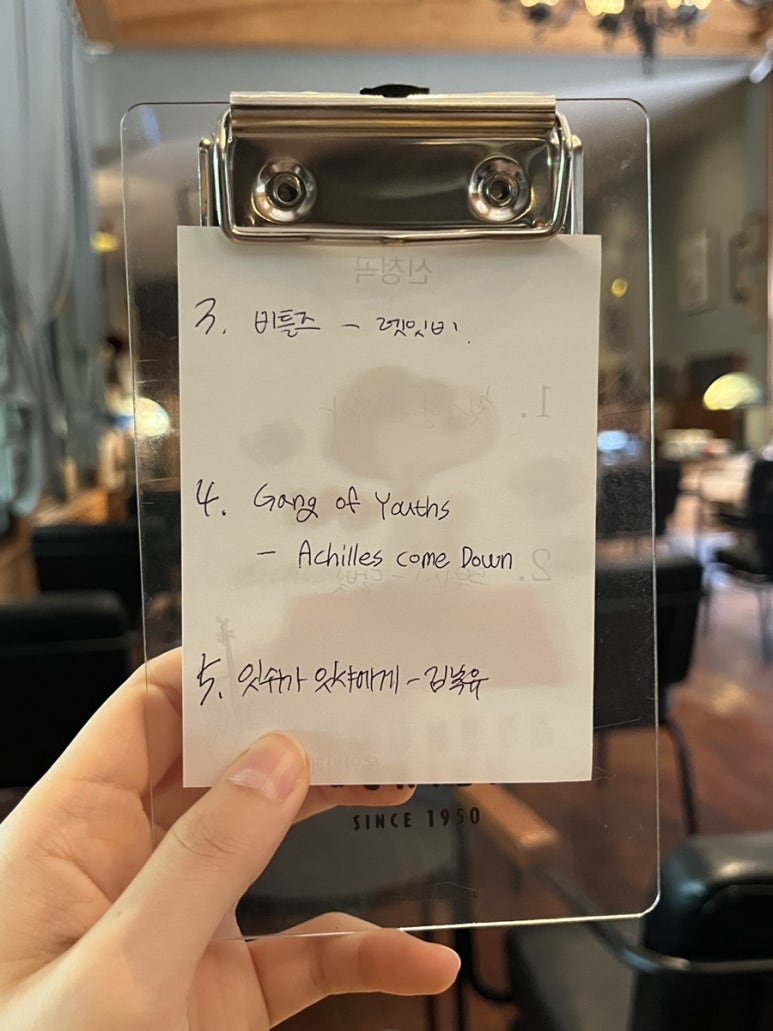 3. 비틀즈 - 렛잇비.
4. Gang of Youths
- Achilles come Down
5. 잇쉬가 잇샤에게 -
SINCE 1950